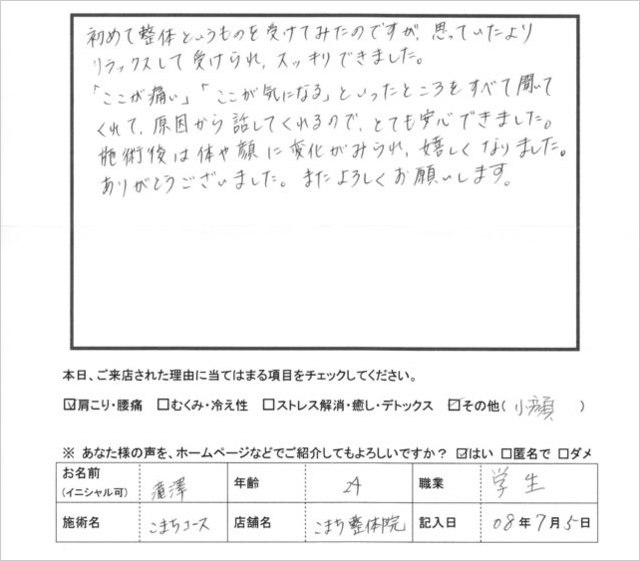 初めて整体というものを受けてみたのですが、思っていたより
リラックスして受けられ、スッキリできました。
「ここが痛い」「ここが気になる」といったところをすべて聞いて
くれて、原因から話してくれるので、とても安心できました。
施術後は体や顔に変化がみられ、嬉しくなりました。
ありがとうございました。またよろしくお願いします。
本日、ご来店された理由に当てはまる項目をチェックしてください。
☑肩こり・腰痛 □むくみ・冷え性 □ストレス解消・癒し・デトックス ☑その他( 小顔 )
※ あなた様の声を、ホームページなどでご紹介してもよろしいですか？ ☑はい □匿名で □ダメ
お名前 (イニシャル可) 瀧澤 年齢 24 職業 学生
施術名 こまちコース 店舗名 こまち整体院 記入日 08年7月5日